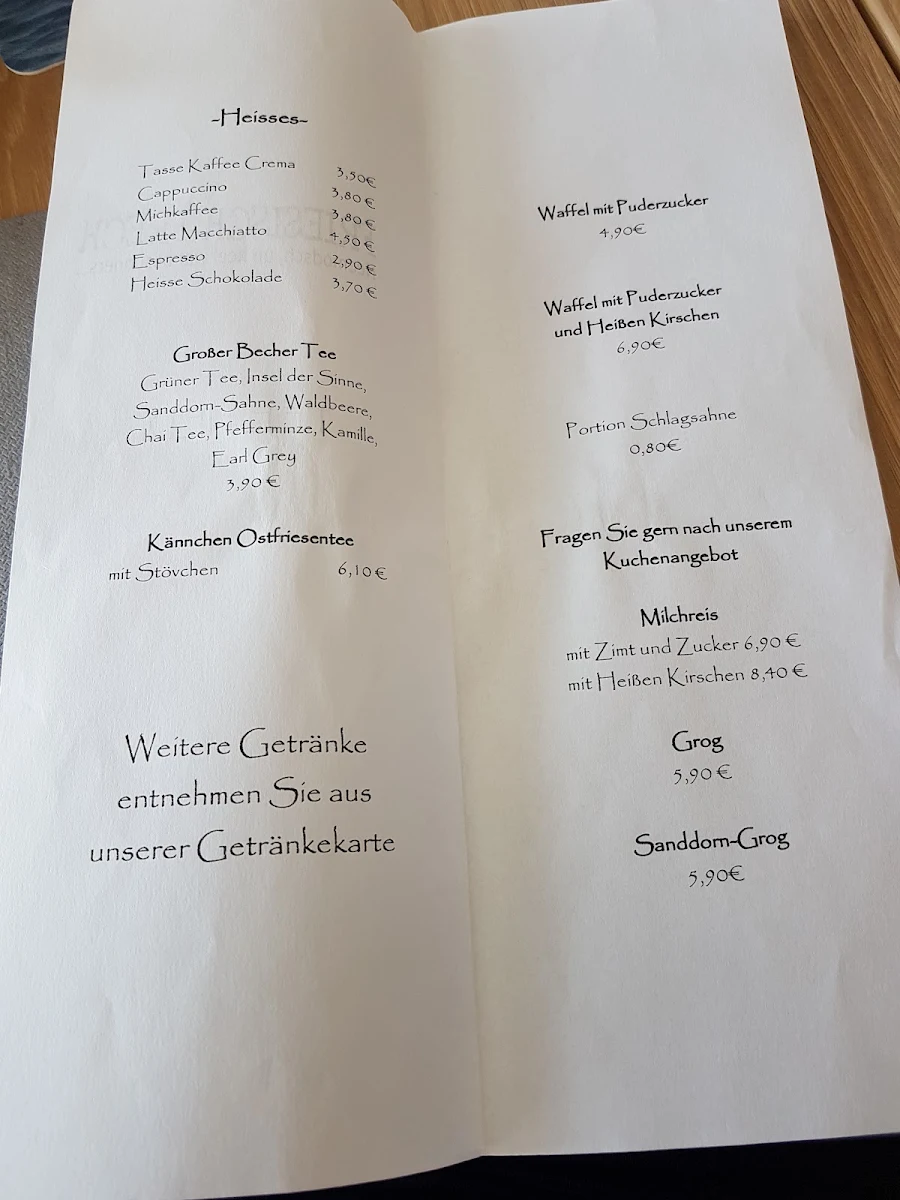 -Heisses-
Tasse Kaffee Crema 3,50€
Cappuccino 3,80€
Michkaffee 3,80€
Latte Macchiatto 4,50€
Espresso 2,90€
Heisse Schokolade 3,70€
Großer Becher Tee
Grüner Tee, Insel der Sinne,
Sanddorn-Sahne, Waldbeere,
Chai Tee, Pfefferminze, Kamille,
Earl Grey
3,90 €
Kännchen Ostfriesentee
mit Stövchen 6,10€
Weitere Getränke
entnehmen Sie aus
unserer Getränkekarte
Waffel mit Puderzucker
4,90€
Waffel mit Puderzucker
und Heißen Kirschen
6,90€
Portion Schlagsahne
0,80€
Fragen Sie gern nach unserem
Kuchenangebot
Milchreis
mit Zimt und Zucker 6,90 €
mit Heißen Kirschen 8,40 €
Grog
5,90 €
Sanddorn-Grog
5,90€